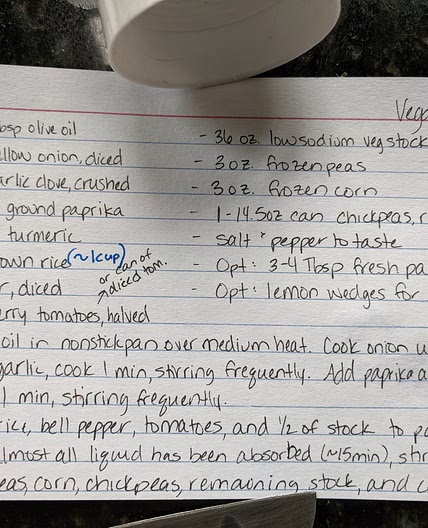 Vega
bsp olive oil - 36 oz. low sodium veg stock
llow onion, diced - 3 oz. frozen peas
arlic clove, crushed - 3 oz. frozen corn
ground paprika - 1-14.5oz can chickpeas, r
turmeric - salt & pepper to taste
own rice (~1 cup) - Opt: 3-4 Tbsp fresh pa
or can of
diced tom.
r, diced - Opt: lemon wedges for
erry tomatoes, halved
oil in nonstick pan over medium heat. Cook onion u
garlic, cook 1 min, stirring frequently. Add paprika a
1 min, stirring frequently.
rice, bell pepper, tomatoes, and 1/2 of stock to pa
lmost all liquid has been absorbed (~15min), stir
eas, corn, chickpeas, remaining stock, and c